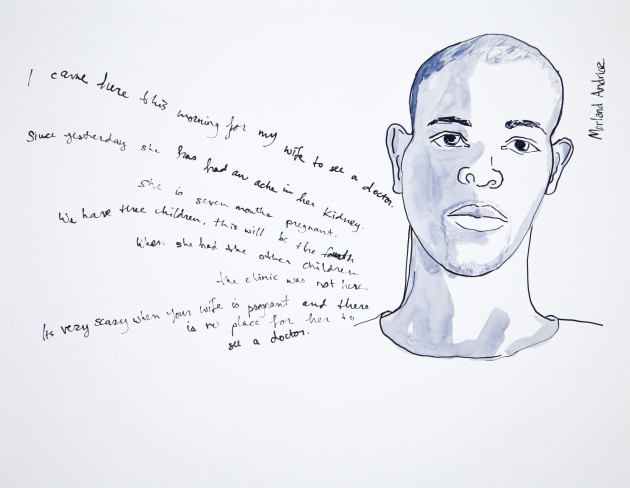 I came here this morning for my wife to see a doctor.
Since yesterday she has had an ache in her kidney.
She is seven months pregnant.
We have three children, this will be the fourth
When she had the other children
the clinic was not here.
Its very scary when your wife is pregnant and there
is no place for her to
see a doctor.
Morland Andrice